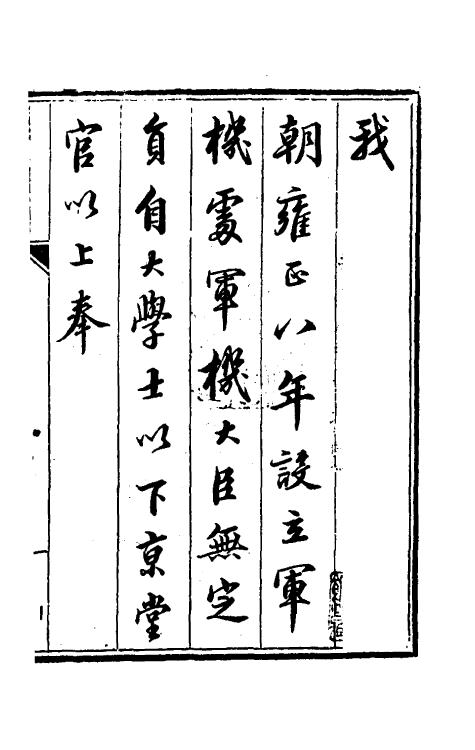 我
朝雍正八年設立軍
機處軍機大臣無定
員自大學士以下京堂
官以上奉